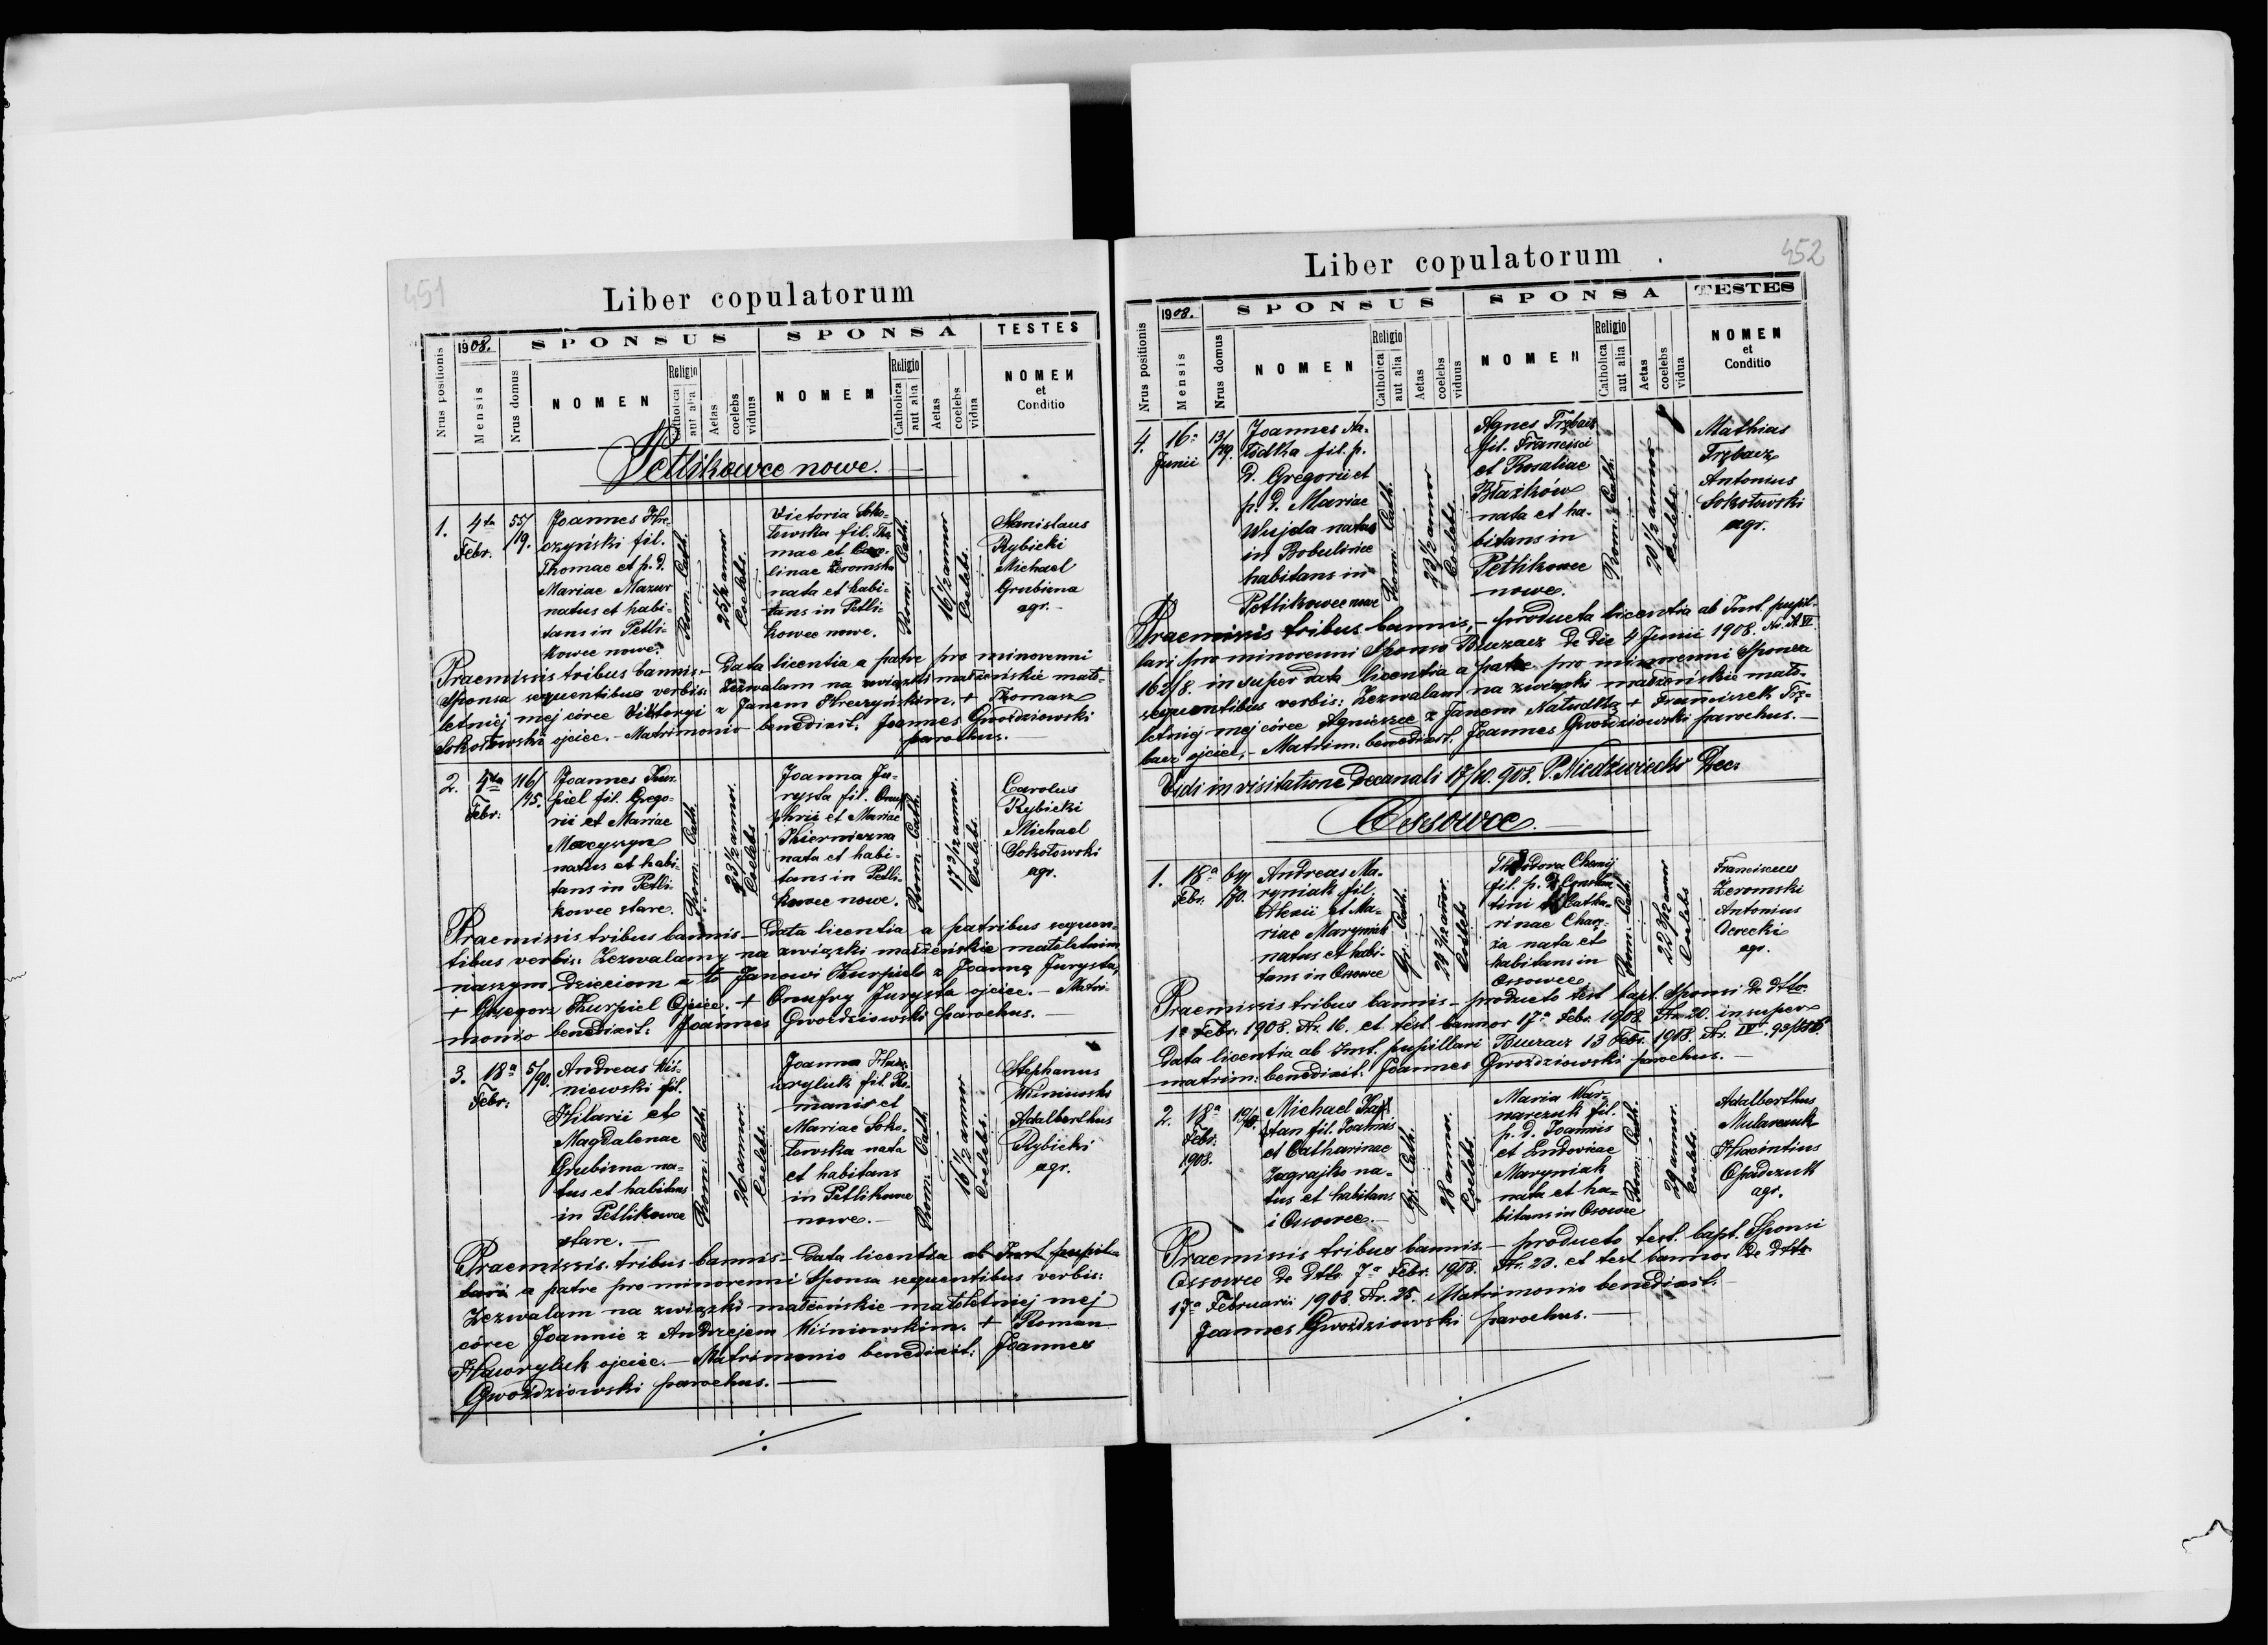 451
Liber copulatorum
Nrus positionis
1908.
Mensis
Nrus domus
SPONSUS
NOMEN
Religio
Catholica
aut alia
Aetas
coelebs
viduus
SPONSA
NOMEN
Religio
Catholica
aut alia
Aetas
coelebs
vidua
TESTES
NOMEN
et
Conditio
Petlikowce nowe.
1.
4ta
Febr.
55/
19.
Joannes Hre-
czyński fil.
Thomae et p. d.
Mariae Mazur
natus et habi-
tans in Petli-
kowce nowe.
Rom. Cath.
25½ annor
Coelebs.
Victoria Soko-
łowska fil. Tho
mae et Caro-
linae Żeromska
nata et habi-
tans in Petli-
kowce nowe.
Rom. Cath.
16½ annor
Coelebs.
Stanislaus
Rybicki
Michael
Grubizna
agr.
Praemissis tribus bannis - Data licentia a patre pro minorenni
Sponsa sequentibus verbis: Zezwalam na związki małżeńskie mało-
letniej mej córce Viktoryi z Janem Hreczyńskim. + Tomasz
Sokołowski ojciec. - Matrimonio benedixit: Joannes Gwoździowski
parochus.
2.
4ta
Febr:
116/
145.
Joannes Kur-
piel fil. Grego-
rii et Mariae
Maryszyn
natus et habi-
tans in Petli-
kowce stare.
Rom. Cath.
23½ annor.
Coelebs
Joanna Ju-
rysta fil. Onu-
phrii et Mariae
Kierniczna
nata et habi-
tans in Petli-
kowce nowe.
Rom. Cath.
17 3/12 annor.
Coelebs.
Carolus
Rybicki
Michael
Sokołowski
agr.
Praemissis tribus bannis - Data licentia a patribus sequen-
tibus verbis: Zezwalamy na związki małżeńskie małoletnim
naszym dzieciom a to Janowi Kurpiel z Joanną Jurysta,
+ Grzegorz Kurpiel Ojciec. + Onufry Jurysta ojciec. - Matri-
monio benedixit: Joannes Gwoździowski parochus.
3.
18a
Febr:
5/
90.
Andreas Wiś-
niewski fil.
Hilarii et
Magdalenae
Grubizna na-
tus et habitans
in Petlikowce
stare. -
Rom. Cath.
26 annor.
Coelebs.
Joanna Haw-
wryluk fil. Ro-
manis et
Mariae Soko-
łowska nata
et habitans
in Petlikowce
nowe. -
Rom. Cath.
16½ annor
Coelebs.
Stephanus
Wiśniowski
Adalberthus
Rybicki
agr.
Praemissis tribus bannis - Data licentia ab Inst. pupil-
lari a patre pro minorenni Sponsa sequentibus verbis:
Zezwalam na związki małżeńskie małoletniej mej
córce Joannie z Andrzejem Wiśniowskim. + Roman
Hawryluk ojciec. - Matrimonio benedixit: Joannes
Gwoździowski parochus.
452
Liber copulatorum
Nrus positionis
1908.
Mensis
Nrus domus
SPONSUS
NOMEN
Religio
Catholica
aut alia
Aetas
coelebs
viduus
SPONSA
NOMEN
Religio
Catholica
aut alia
Aetas
coelebs
vidua
TESTES
NOMEN
et
Conditio
4.
16a
Junii
13/
179.
Joannes Na-
tódka fil. p.
d. Gregorii et
p. d. Mariae
Wujda natus
in Bobulińce
habitans in
Petlikowce nowe
Rom. Cath.
23½ annor
Coelebs.
Agnes Trębacz
fil. Francisci
et Rosaliae
Błażków
nata et ha-
bitans in
Petlikowce
nowe.
Rom. Cath.
20½ annor
Coelebs.
Mathias
Trębacz
Antonius
Sokołowski
agr.
Praemissis tribus bannis, - producta licentia ab Inst. pupil-
lari pro minorenni Sponso Buczacz de die 4 Junii 1908. Nr. A VI.
162/8. insuper data licentia a patre pro minorenni Sponsa
sequentibus verbis: Zezwalam na związki małżeńskie mało-
letniej mej córce Agnieszce z Janem Natudką + Franciszek Trę-
bacz ojciec. - Matrim. benedixit. Joannes Gwoździowski parochus. -
Vidi in visitatione Decanali 17/10. 908. P. Niedźwiecki Dec.
Ossowce.
1.
18a
Febr.
64/
170.
Andreas Ma-
ryniak fil.
Alexii et Ma-
riae Maryniak
natus et habi-
tans in Ossowce
Gr. Cath.
Coelebs
fil. p. d. Constan
tini et Catha-
rinae
nata et
habitans in
Ossowce
Rom. Cath.
Coelebs
Franciscus
Żeromski
Antonius
Derecki
agr.
Praemissis tribus bannis - producto test. bapt. Sponsi de dtto
1a Febr. 1908. Nr. 16. et test. bannor 17a Febr. 1908. Nr. 20. insuper
data licentia ab Inst. pupillari Buczacz 13 Febr. 1908. Nr. IV.
matrim: benedixit: Joannes Gwoździowski parochus. -
2.
18a
Febr.
1908.
Michael
fil. Joannis
et Catharinae
Zagrajko na-
tus et habitans
i Ossowce. -
Gr. Cath.
28 annor.
Coelebs
Maria War-
narczuk fil.
p. d. Joannis
et Ludovicae
Maryniak
nata et ha-
bitans in Osowce
Rom. Cath.
29 annor.
Coelebs.
Adalberthus
Mularczuk
Hiacintius
Opadczuk
agr.
Praemissis tribus bannis. - producto test. bapt. Sponsi
Ossowce de dtto 7a Febr. 1908. Nr. 23. et test. bannor de dtto
17a Februarii 1908. Nr. 25. Matrimonio benedixit: -
Joannes Gwoździowski parochus. -